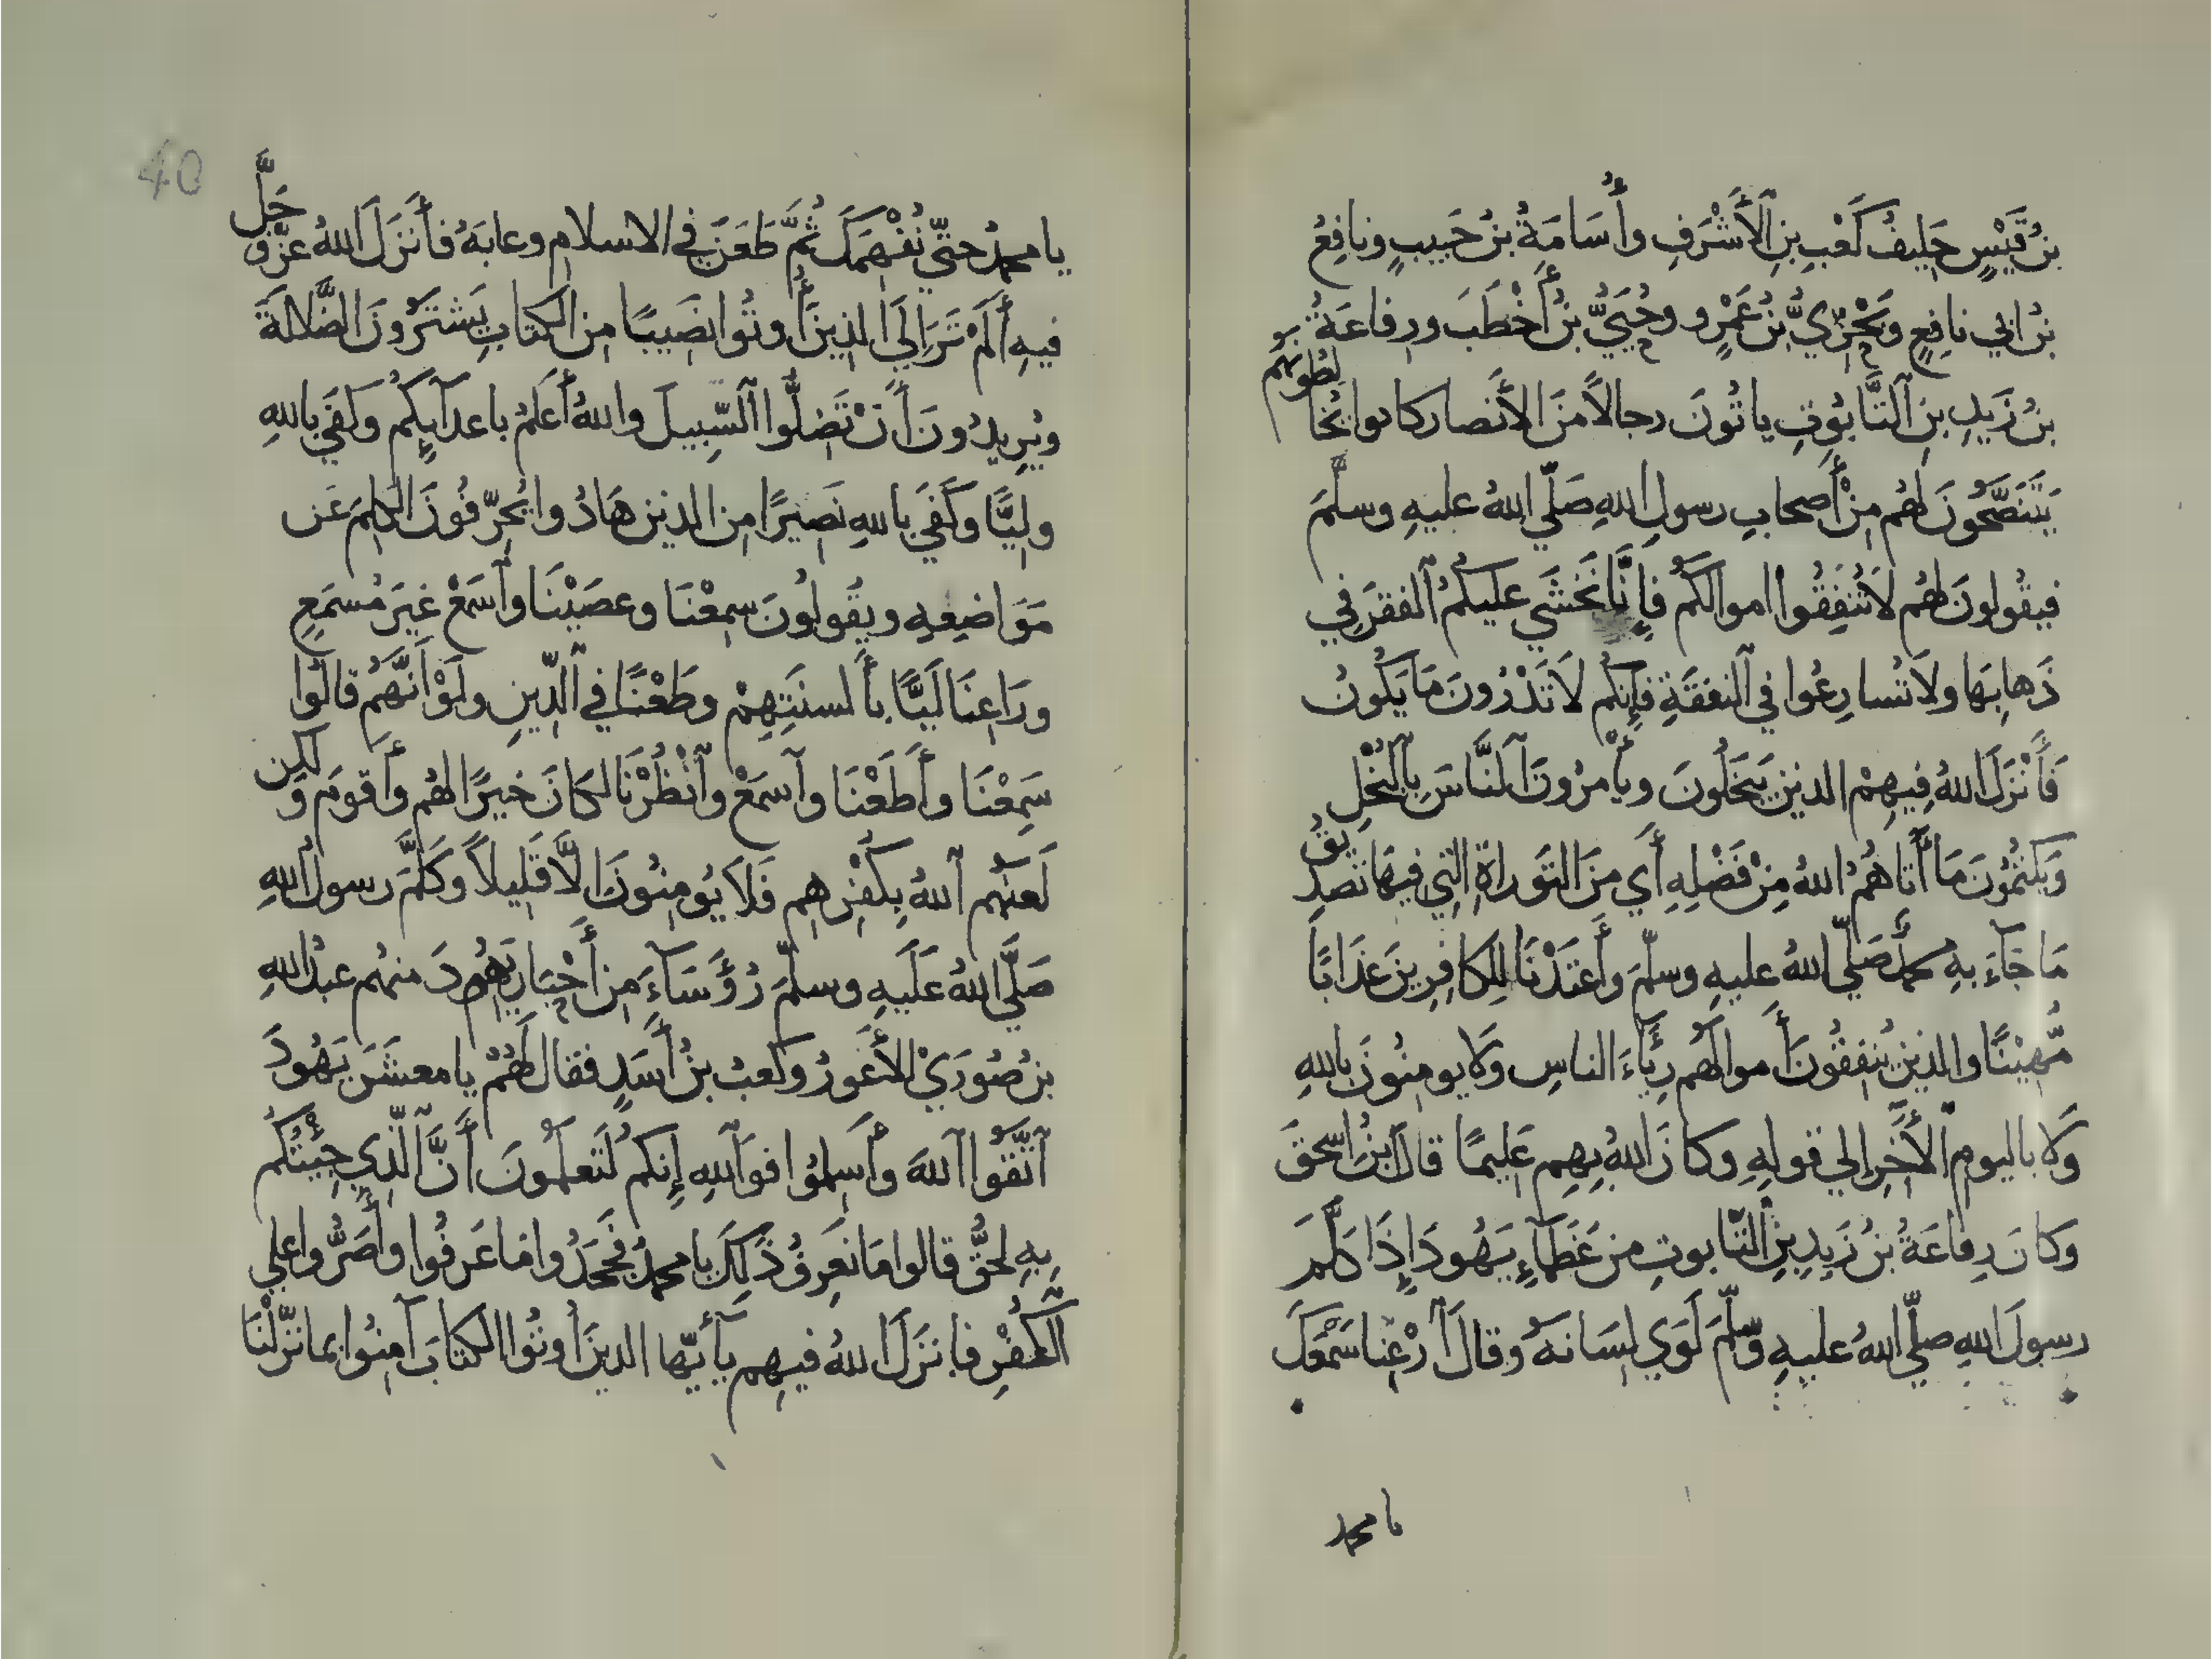 بنُ قَيْسٍ حَلِيفُ كَعْبِ بنِ الأَشْرَفِ وأُسَامَةُ بنُ حَبيبٍ ونافِعُ
بنُ ابي نافِعٍ وبَحْرِيُّ بنُ عَمْرٍو وحُيَيُّ بنُ أَخْطَبَ ورِفاعَةُ
بنُ زَيدِ بنِ التَّابُوتِ ياتُونَ رجالاً منَ الأَنصار كانوا يُخا
لِطُونَهُم
يَتَنَصَّحُونَ لَهُم مِنْ أَصحابِ رسولِ اللهِ صَلّي اللهُ عليهِ وسلَّمَ
فيقُولونَ لَهُم لاَ تُنفِقُوا اموالكُم فإِنَّا نَخْشَي عليكُمُ الفقرَ في
ذَهابِهَا ولاَ تُسارِعُوا في النفقَةِ فإِنكُم لاَ تَدْرُونَ مَا يَكُونُ
فَأَنْزَلَ اللهُ فِيهِمْ الذين يَبْخَلُونَ ويأْمرُونَ النَّاسَ بِالْبُخْلِ
وَيَكْتُمُونَ مَا أَتَاهُمُ اللهُ مِنْ فَضْلِهِ أَي منَ التَّوراةِ التِي فيهَا تَصدِ
يقُ
مَا جَآءَ بِهِ محمدٌ صَلّي اللهُ عليهِ وسلّمَ وأَعتَدْنَا لِلكافِرِينَ عَذَابًا
مُّهِيْنًا والذينَ يُنفِقُونَ أَموالَهُم رِيَآءَ الناسِ وَلا يومِنُونَ باللهِ
وَلا باليومِ الأَخِرِ إلي قولِهِ وكانَ اللهُ بِهِم عَلِيمًا قالَ ابنُ اسحقَ
وكانَ رِفاعَةُ بنُ زَيدِ بنِ التَّابوتِ من عُظَمآءِ يَهُودَ إِذَا كَلَّمَ
رسولَ اللهِ صلّي اللهُ عليهِ وسلّمَ لَوَي لِسَانَهُ وقالَ أَرْعِنا سَمْعَكَ
يا محمد
40
يا محمدُ حتّي نُفْهِمَكَ ثُمَّ طَعَنَ في الاسلامِ وعابَهُ فأَنزَلَ اللهُ عزّ و
جَلَّ
فيهِ أَلَمْ تَرَ إِلَي الذينَ أُوتُوا نصيبًا من الكتابِ يَشتَرُونَ الضَّلالَةَ
ويُرِيدُونَ أَنْ تَضِلُّوا السَّبِيلَ واللهُ أَعلمُ باعدآئِكُم وكفَي باللهِ
ولِيًّا وكَفَي باللهِ نَصِيرًا من الذينَ هَادُوا يُحَرّفُونَ الكَلِمَ عَن
مَوَاضِعِهِ ويقُولُونَ سمِعْنَا وعصَيْنَا وآسمَعْ غيرَ مُسمَعٍ
ورَاعِنَا لَيًّا بأَلسنَتِهِمْ وطَعْنًا في الدّينِ ولَوْ أَنَّهُم قالُوا
سَمِعْنَا وأَطَعْنَا وآسمَعْ وآنْظُرْنَا لكانَ خيرًا لَهُم وأَقومَ وَ
لكن
لَعنَهُم اللهُ بِكُفْرِهِم فَلا يُومِنُونَ الَّا قَلِيلاً وَكَلَّمَ رسولُ اللهِ
صَلَّي اللهُ عَلَيهِ وسلّمَ رُؤَسَآءَ مِن أَحْبَارِ يَهُودَ منهُم عبدُ اللهِ
بن صُورَيْ الأَعْوَرُ وكَعبُ بنُ أَسَدٍ فقال لَهُمْ يا معشَرَ يَهُودَ
آتَّقُوا اللهَ وأَسلِمُوا فواللهِ إِنكم لَتَعلَمُونَ أَنَّ الَّذِي جِئْتُكُم
بِهِ لحقٌّ قالوا مَا نَعرِفُ ذَلِكَ يا محمدُ فجَحَدُوا ما عَرفُوا وأَصَرُّوا علي
الكُفْرِ فانزَلَ اللهُ فيهِم يَآأَيّها الذينَ أُوتُوا الكتابَ آمِنُوا بما نَزَّلْنَا